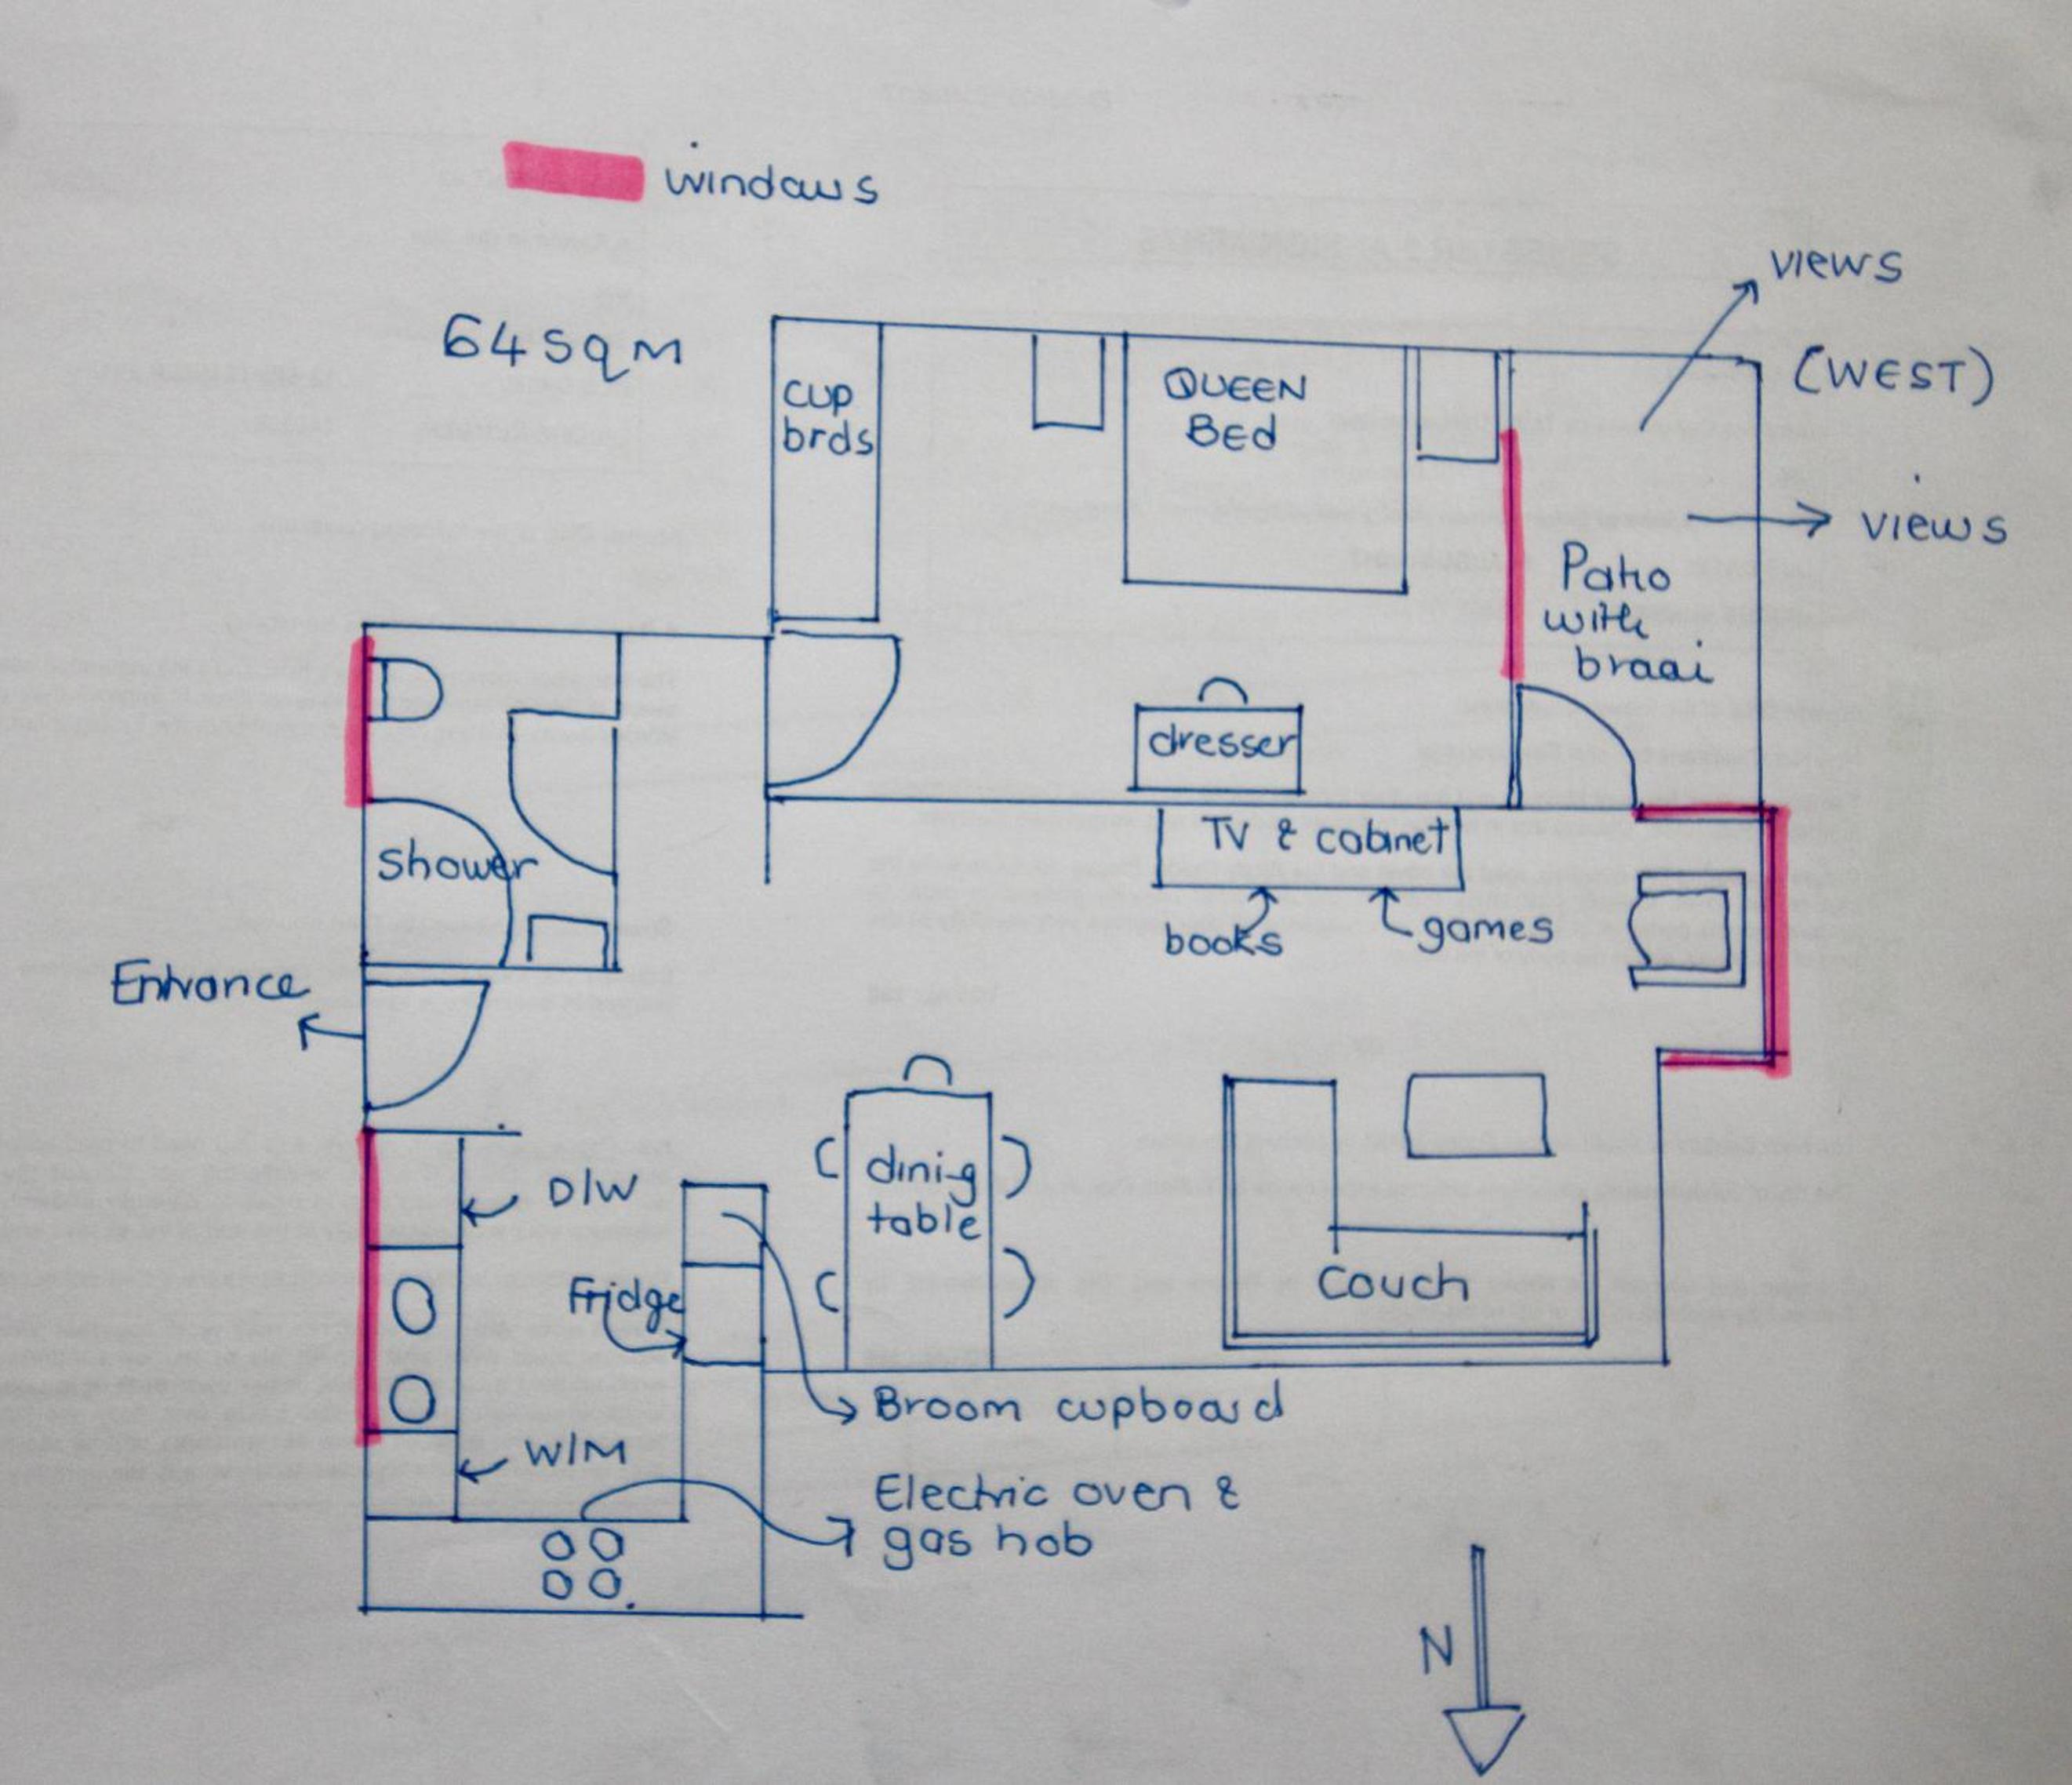 windows
64 sqm
views
(WEST)
views
cup
brds
QUEEN
Bed
Patio
with
braai
dresser
TV & cabinet
books
games
shower
Entrance
D/W
Fridge
dining
table
couch
Broom cupboard
W/M
Electric oven &
gas hob
N